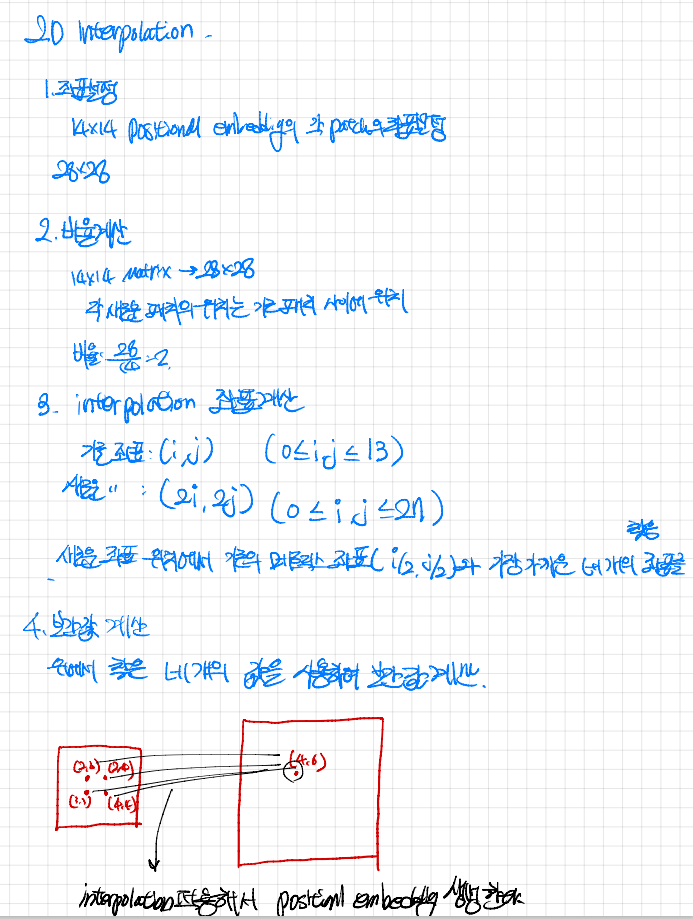 2D Interpolation.
1. 좌표설정
14x14 positional embedding의 각 patch의 좌표설정
28x28
2. 비율계산
14x14 matrix → 28x28
각 새로운 패치의 위치는 기존 패치 사이에 위치
비율: 28/14 = 2
3. interpolation 좌표계산
기존 좌표: (i, j) (0 ≤ i, j ≤ 13)
새로운 〃 : (2i, 2j) (0 ≤ i, j ≤ 27)
찾음
새로운 좌표 위치에서 기존의 매트릭스 좌표(i/2, j/2)와 가장 가까운 네개의 좌표를
4. 보간값 계산
위에서 찾은 네개의 값을 사용하여 보간값 계산.
(4,6)
interpolation 적용해서 positional embedding 생성한다